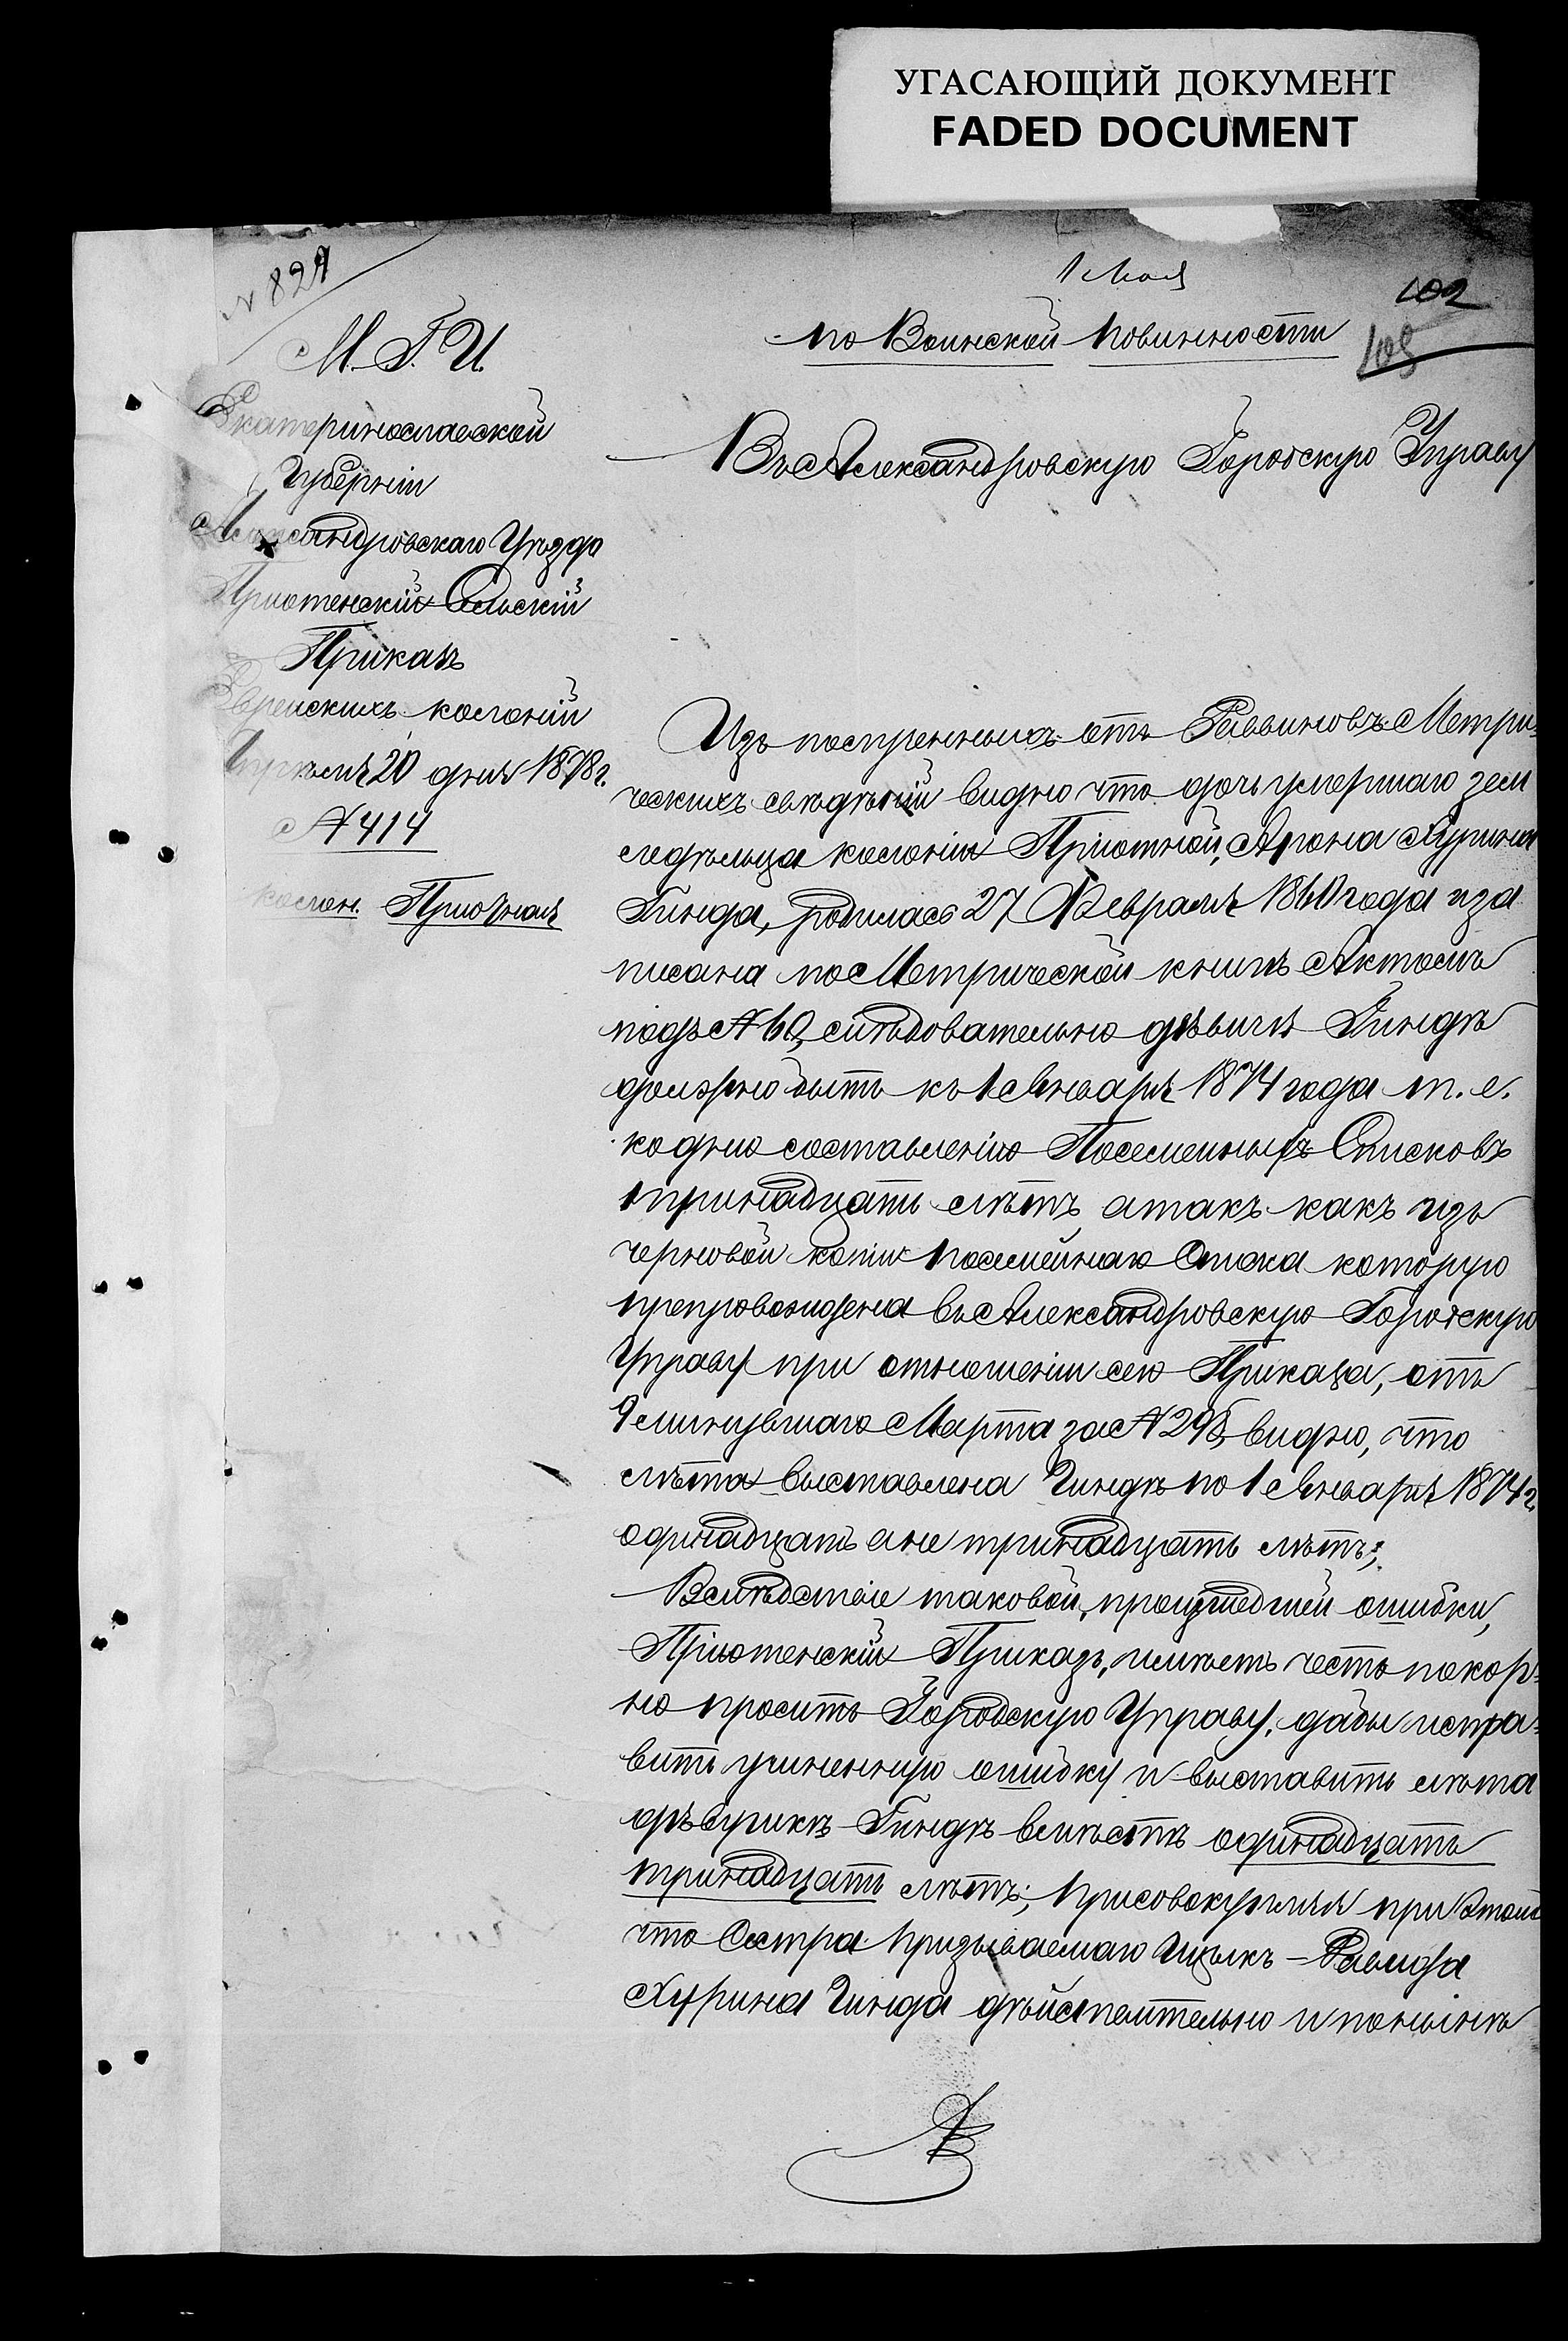 УГАСАЮЩИЙ ДОКУМЕНТ
FADED DOCUMENT
№ 829
1 Мая
102
103
М. Г. И.
Екатеринославской
Губерніи
Александровскаго Уѣзда
Пріютенскій Сельскій
Приказъ
Еврейскихъ колоній
Апрѣля 20 дня 1878 г.
№ 414
колон. Пріютная
по Воинской повинности
Въ Александровскую Городскую Управу
Изъ построенныхъ отъ Раввиновъ Метри-
ческихъ свѣдѣній видно что дочь умершаго зем
ледѣльца колоніи Пріютной, Арона Хурина
Гинда, родилась 27 Февраля 1860 года и за
писана по Метрической книгѣ Актомъ
подъ № 60, слѣдовательно дѣвицѣ Гиндѣ
должно быть къ 1 Января 1874 года т. е.
ко дню составленію Посемейныхъ Списковъ
тринадцать лѣтъ, а такъ какъ изъ
черновой копіи посемейнаго Списка которую
препровождена въ Александровскую Городскую
Управу при отношеніи сего Приказа, отъ
9 минувшаго Марта за № 295, видно, что
лѣта выставлена Гиндѣ по 1 Января 1874 г.
одинадцать а не тринадцать лѣтъ;
Вслѣдствіе таковой, происшедшей ошибки,
Пріютенскій Приказъ, имѣетъ честь покор-
но просить Городскую Управу, дабы испра-
вить учиненную ошибку и выставить лѣта
дѣвушкѣ Гиндѣ вмѣсто одинадцать
тринадцать лѣтъ; присовокупляя при этомъ
что Сестра призываемаго Ицыкъ-
Хурина Гинда дѣйствительно и понынѣ